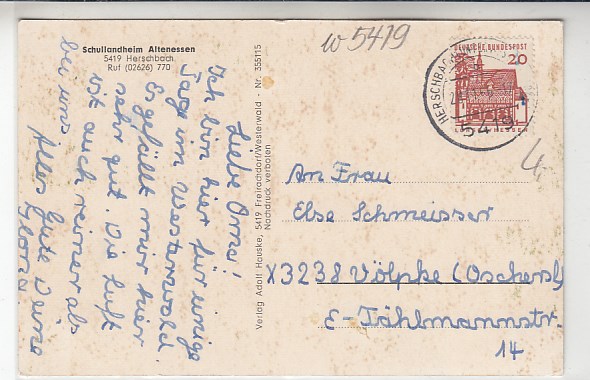 Schullandheim Altenessen
5419 Herschbach
Ruf (02626) 770
w 5419
Liebe Oma!
Ich bin hier für einige
Tage im Westerwald.
Es gefällt mir hier
sehr gut. Die Luft
ist auch reiner als
bei uns.
Alles Gute Deine
Verlag Adolf Hauske, 5419 Freirachdorf/Westerwald - Nr. 355115
Nachdruck verboten
DEUTSCHE BUNDESPOST
20
HERSCHBACH
5419
4,-
An Frau
Else Schmeisser
X3238 Völpke (Oschersl)
E-Tählmannstr.
14